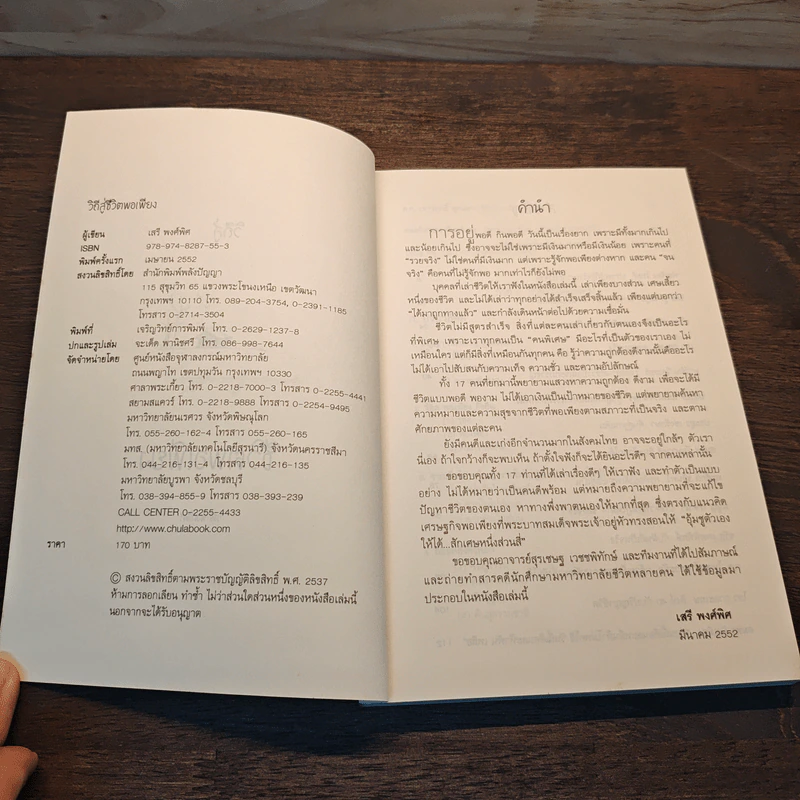 วิถีสู่ชีวิตพอเพียง
ผู้เขียน เสรี พงศ์พิศ
ISBN 978-974-8287-55-3
พิมพ์ครั้งแรก เมษายน 2552
สงวนลิขสิทธิ์โดย สำนักพิมพ์พลังปัญญา
115 สุขุมวิท 65 แขวงพระโขนงเหนือ เขตวัฒนา
กรุงเทพฯ 10110 โทร. 089-204-3754, 0-2391-1185
โทรสาร 0-2714-3504
พิมพ์ที่ เจริญวิทย์การพิมพ์ โทร. 0-2629-1237-8
ปกและรูปเล่ม จะเด็ด พานิชศรี โทร. 086-998-7644
จัดจำหน่ายโดย ศูนย์หนังสือจุฬาลงกรณ์มหาวิทยาลัย
ถนนพญาไท เขตปทุมวัน กรุงเทพฯ 10330
ศาลาพระเกี้ยว โทร. 0-2218-7000-3 โทรสาร 0-2255-4441
สยามสแควร์ โทร. 0-2218-9888 โทรสาร 0-2254-9495
มหาวิทยาลัยนเรศวร จังหวัดพิษณุโลก
โทร. 055-260-162-4 โทรสาร 055-260-165
มทส. (มหาวิทยาลัยเทคโนโลยีสุรนารี) จังหวัดนครราชสีมา
โทร. 044-216-131-4 โทรสาร 044-216-135
มหาวิทยาลัยบูรพา จังหวัดชลบุรี
โทร. 038-394-855-9 โทรสาร 038-393-239
CALL CENTER 0-2255-4433
http://www.chulabook.com
ราคา 170 บาท
© สงวนลิขสิทธิ์ตามพระราชบัญญัติลิขสิทธิ์ พ.ศ. 2537
ห้ามการลอกเลียน ทำซ้ำ ไม่ว่าส่วนใดส่วนหนึ่งของหนังสือเล่มนี้
นอกจากจะได้รับอนุญาต
คำนำ
การอยู่พอดี กินพอดี วันนี้เป็นเรื่องยาก เพราะมีทั้งมากเกินไป
และน้อยเกินไป ซึ่งอาจจะไม่ใช่เพราะมีเงินมากหรือมีเงินน้อย เพราะคนที่
"รวยจริง" ไม่ใช่คนที่มีเงินมาก แต่เพราะรู้จักพอเพียงต่างหาก และคน "จน
จริง" คือคนที่ไม่รู้จักพอ มากเท่าไรก็ยังไม่พอ
บุคคลที่เล่าชีวิตให้เราฟังในหนังสือเล่มนี้ เล่าเพียงบางส่วน เศษเสี้ยว
หนึ่งของชีวิต และไม่ได้เล่าว่าทุกอย่างได้สำเร็จเสร็จสิ้นแล้ว เพียงแต่บอกว่า
"ได้มาถูกทางแล้ว" และกำลังเดินหน้าต่อไปด้วยความเชื่อมั่น
ชีวิตไม่มีสูตรสำเร็จ สิ่งที่แต่ละคนเล่าเกี่ยวกับตนเองจึงเป็นอะไร
ที่พิเศษ เพราะเราทุกคนเป็น "คนพิเศษ" มีอะไรที่เป็นตัวของเราเอง ไม่
เหมือนใคร แต่ก็มีสิ่งที่เหมือนกันทุกคน คือ รู้ว่าความถูกต้องดีงามนั้นคืออะไร
ไม่ได้เอาไปสับสนกับความเท็จ ความชั่ว และความอัปลักษณ์
ทั้ง 17 คนที่ยกมานี้พยายามแสวงหาความถูกต้อง ดีงาม เพื่อจะได้มี
ชีวิตแบบพอดี พองาม ไม่ได้เอาเงินเป็นเป้าหมายของชีวิต แต่พยายามค้นหา
ความหมายและความสุขจากชีวิตที่พอเพียงตามสภาวะที่เป็นจริง และตาม
ศักยภาพของแต่ละคน
ยังมีคนดีและเก่งอีกจำนวนมากในสังคมไทย อาจจะอยู่ใกล้ๆ ตัวเรา
นี่เอง ถ้าใจกว้างก็จะพบเห็น ถ้าตั้งใจฟังก็จะได้ยินอะไรดีๆ จากคนเหล่านั้น
ขอขอบคุณทั้ง 17 ท่านที่ได้เล่าเรื่องดีๆ ให้เราฟัง และทำตัวเป็นแบบ
อย่าง ไม่ได้หมายว่าเป็นคนดีพร้อม แต่หมายถึงความพยายามที่จะแก้ไข
ปัญหาชีวิตของตนเอง หาทางพึ่งพาตนเองให้มากที่สุด ซึ่งตรงกับแนวคิด
เศรษฐกิจพอเพียงที่พระบาทสมเด็จพระเจ้าอยู่หัวทรงสอนให้ "อุ้มชูตัวเอง
ให้ได้...สักเศษหนึ่งส่วนสี่"
ขอขอบคุณอาจารย์สุรเชษฐ เวชชพิทักษ์ และทีมงานที่ได้ไปสัมภาษณ์
และถ่ายทำสารคดีนักศึกษามหาวิทยาลัยชีวิตหลายคน ได้ใช้ข้อมูลมา
ประกอบในหนังสือเล่มนี้
เสรี พงศ์พิศ
มีนาคม 2552